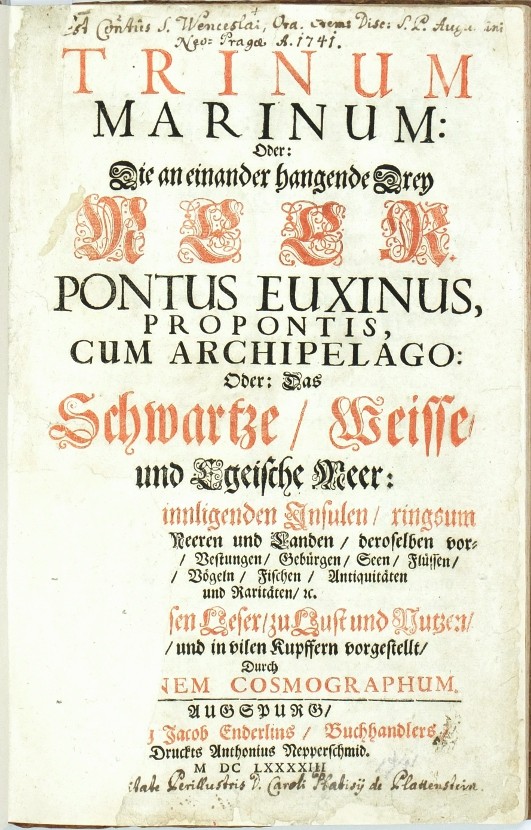 Contûs S. Wenceslai, Ord. Erem: Disc: S. P. Augustini
Neo: Pragæ A. 1741.
TRINUM
MARINUM:
Oder:
Die an einander hangende Drey
MEER.
PONTUS EUXINUS,
PROPONTIS,
CUM ARCHIPELAGO:
Oder: Das
Schwartze / Weisse /
und Egeische Meer:
innligenden Insulen / ringsum
Meeren und Landen / deroselben vor-
/ Vestungen / Gebürgen / Seen / Flüssen /
/ Vögeln / Fischen / Antiquitäten
und Raritäten / ꝛc.
sen Leser / zu Lust und Nutzen /
/ und in vilen Kupffern vorgestellt /
Durch
NEM COSMOGRAPHUM.
AUGSPURG /
g Jacob Enderlins / Buchhandlers /
Druckts Anthonius Nepperschmid.
M DC LXXXXIII
itate Perillustris D. Caroli de Plattenstein.